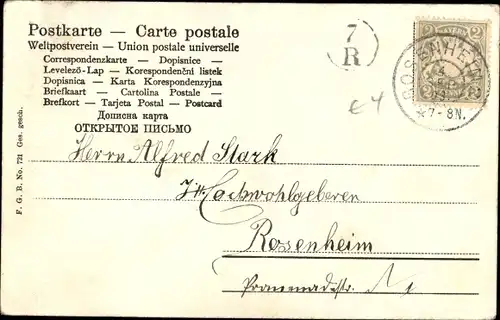 Postkarte – Carte postale
Weltpostverein – Union postale universelle
Correspondenzkarte – Dopisnice –
Levelező-Lap – Korespondenční listek
Dopisnica – Karta Korespondenzyjna
Briefkaart – Cartolina Postale –
Brefkort – Tarjeta Postal – Postcard
Дописна карта
ОТКРЫТОЕ ПИСЬМО
7
R
2 2
ROSENHEIM
*7-8N.
€4
F. G. B. No. 731 Ges. gesch.
Herrn Alfred Stark
Hochwohlgeboren
Rosenheim
Promenadestr. N 1